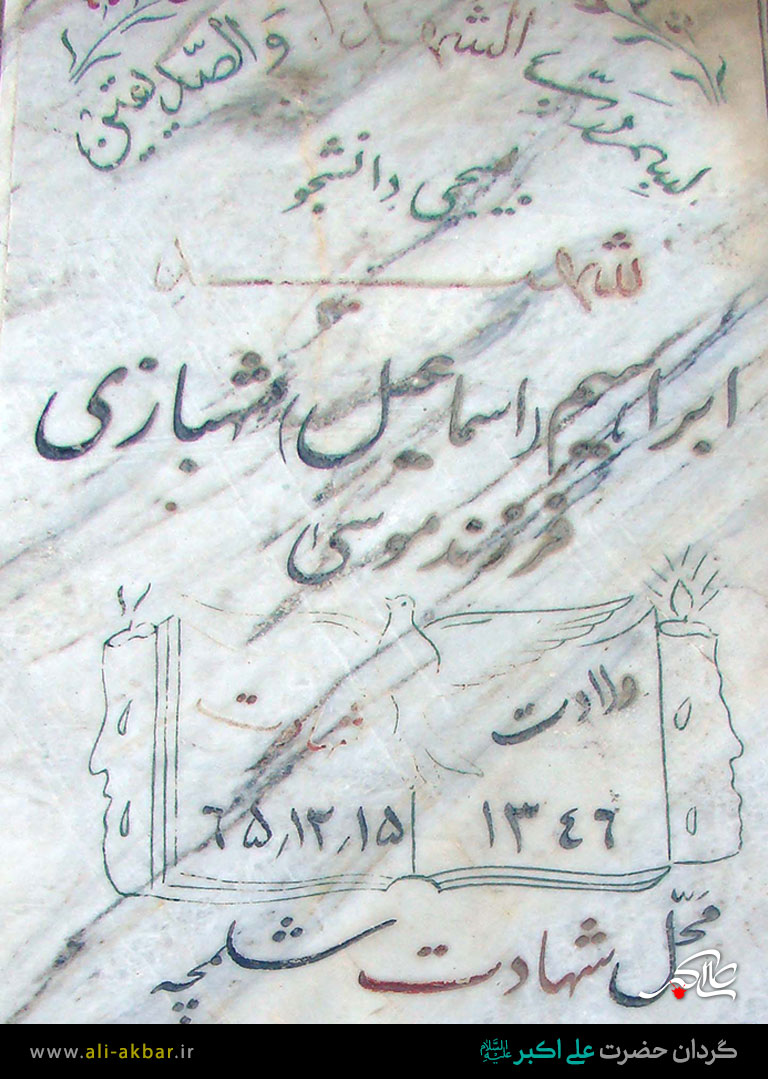 بسم رب الشهداء والصدیقین
بسیجی دانشجو
شهید
ابراهیم (اسماعیل) شهبازی
فرزند موسی
ولادت
۱۳۴۶
شهادت
۶۵٫۱۲٫۱۵
محل شهادت شلمچه
علی اکبر
www.ali-akbar.ir
گردان حضرت علی اکبر علیه السلام